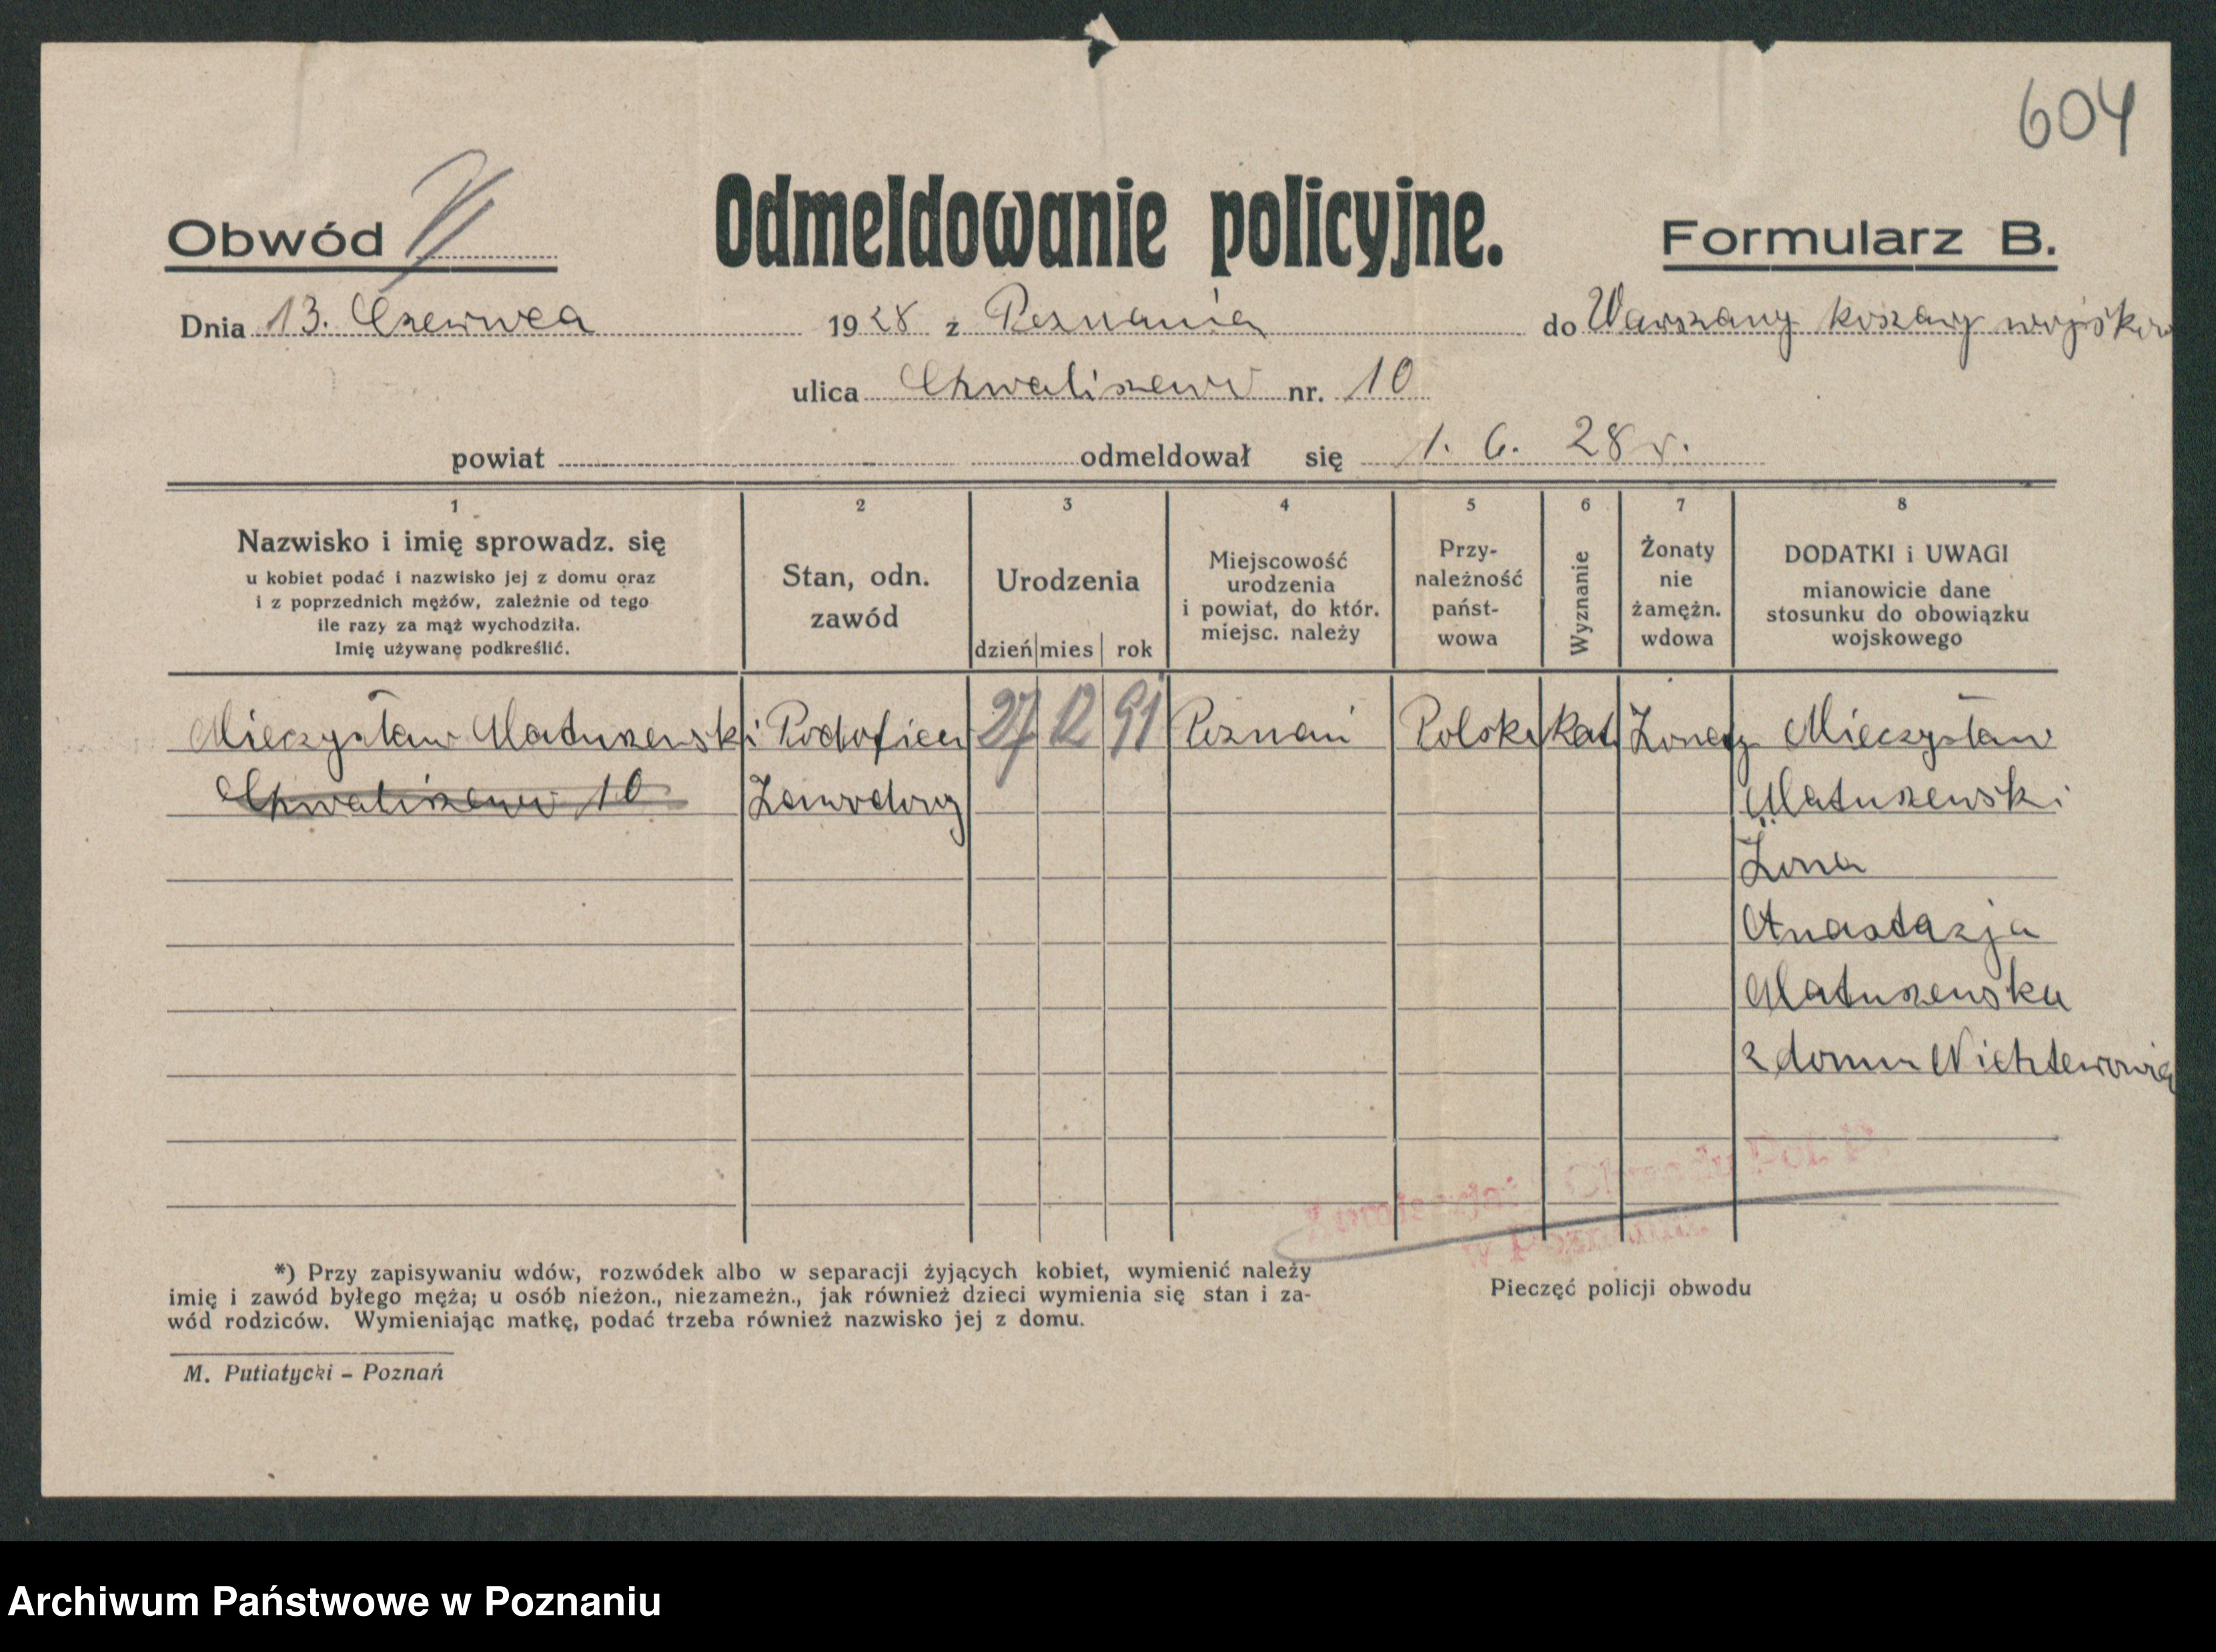 604
Obwód V Odmeldowanie policyjne. Formularz B.
Dnia 13. Czerwca 1928 z Poznania do Warszawy koszary wojskow
ulica Chwaliszewo nr. 10
powiat odmeldował się 1. 6. 28 r.
1 2 3 4 5 6 7 8
Nazwisko i imię sprowadz. się
u kobiet podać i nazwisko jej z domu oraz
i z poprzednich mężów, zależnie od tego
ile razy za mąż wychodziła.
Imię używanę podkreślić.
Stan, odn.
zawód
Urodzenia
dzień mies rok
Miejscowość
urodzenia
i powiat, do któr.
miejsc. należy
Przy-
należność
państ-
wowa
Wyznanie
Żonaty
nie
żamężn.
wdowa
DODATKI i UWAGI
mianowicie dane
stosunku do obowiązku
wojskowego
Mieczysław Matuszewski Podoficer 27 12 91 Poznań Polska kat. Żonaty Mieczysław
Chwaliszewo 10 Zawodowy Matuszewski
Żona
Anastazja
Matuszewska
z domu
Komisarjat Obwodu Pol. P.
w Poznaniu.
*) Przy zapisywaniu wdów, rozwódek albo w separacji żyjących kobiet, wymienić należy
imię i zawód byłego męża; u osób nieżon., niezameżn., jak również dzieci wymienia się stan i za-
wód rodziców. Wymieniając matkę, podać trzeba również nazwisko jej z domu.
Pieczęć policji obwodu
M. Putiatycki – Poznań
Archiwum Państwowe w Poznaniu